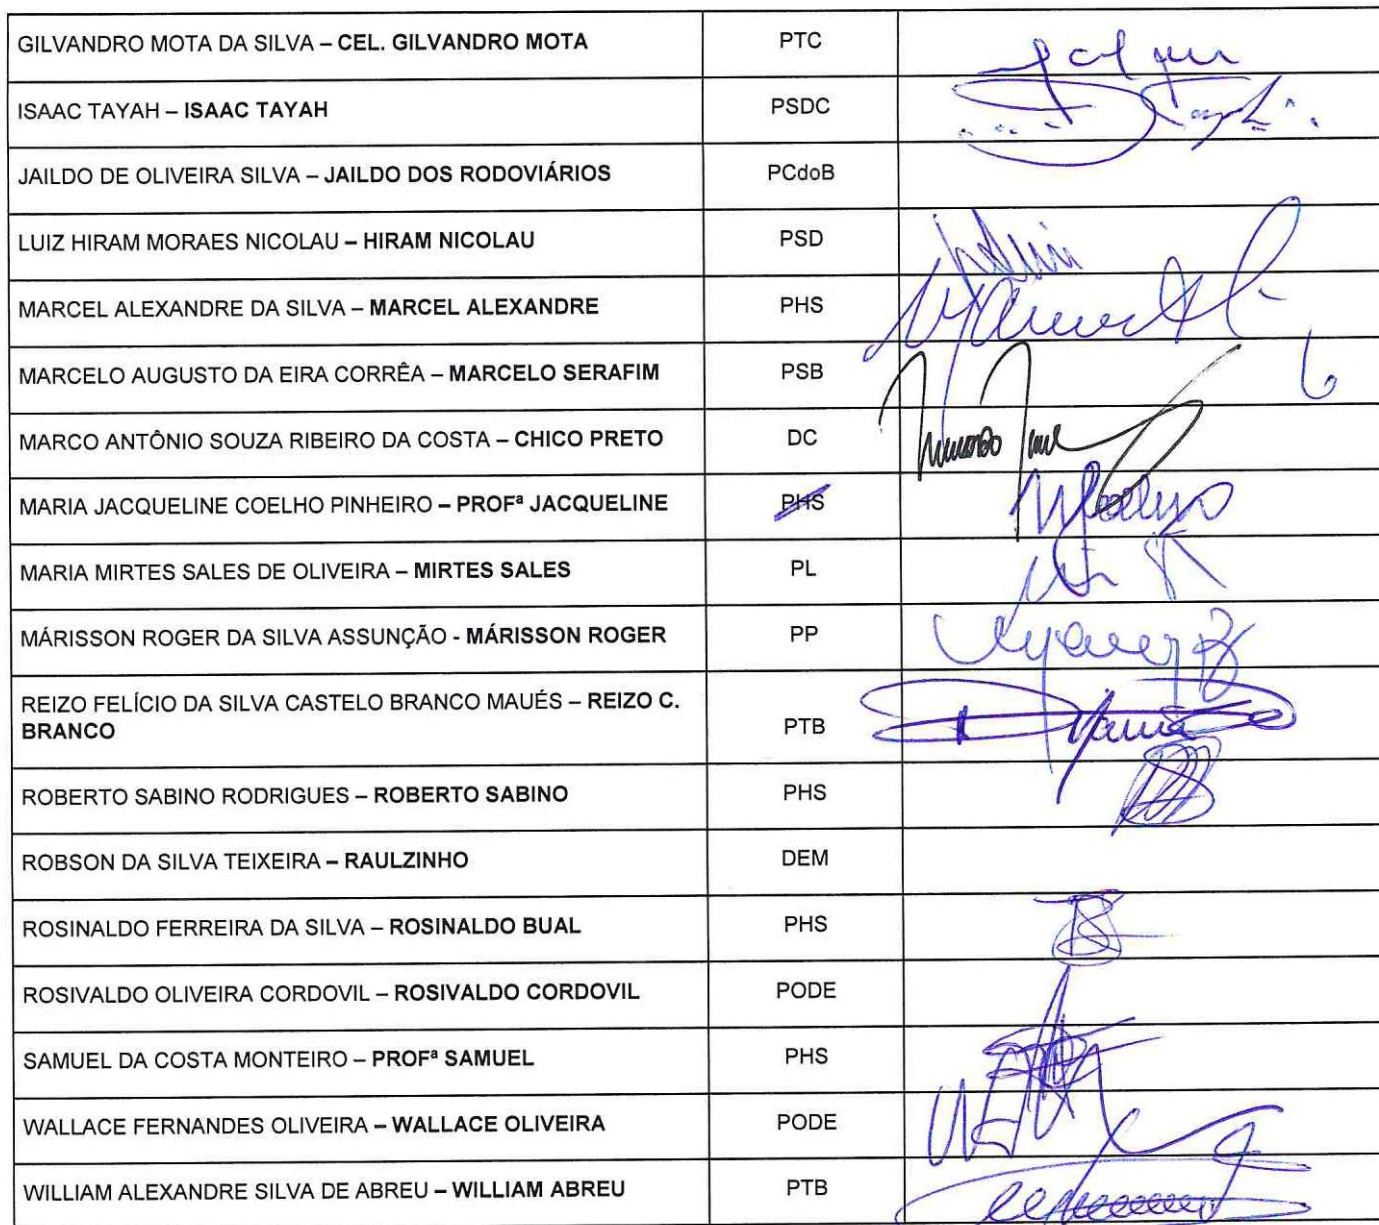 GILVANDRO MOTA DA SILVA – CEL. GILVANDRO MOTA PTC
ISAAC TAYAH – ISAAC TAYAH PSDC
JAILDO DE OLIVEIRA SILVA – JAILDO DOS RODOVIÁRIOS PCdoB
LUIZ HIRAM MORAES NICOLAU – HIRAM NICOLAU PSD
MARCEL ALEXANDRE DA SILVA – MARCEL ALEXANDRE PHS
MARCELO AUGUSTO DA EIRA CORRÊA – MARCELO SERAFIM PSB
MARCO ANTÔNIO SOUZA RIBEIRO DA COSTA – CHICO PRETO DC
MARIA JACQUELINE COELHO PINHEIRO – PROFª JACQUELINE PHS
MARIA MIRTES SALES DE OLIVEIRA – MIRTES SALES PL
MÁRISSON ROGER DA SILVA ASSUNÇÃO - MÁRISSON ROGER PP
REIZO FELÍCIO DA SILVA CASTELO BRANCO MAUÉS – REIZO C.
BRANCO PTB
ROBERTO SABINO RODRIGUES – ROBERTO SABINO PHS
ROBSON DA SILVA TEIXEIRA – RAULZINHO DEM
ROSINALDO FERREIRA DA SILVA – ROSINALDO BUAL PHS
ROSIVALDO OLIVEIRA CORDOVIL – ROSIVALDO CORDOVIL PODE
SAMUEL DA COSTA MONTEIRO – PROFª SAMUEL PHS
WALLACE FERNANDES OLIVEIRA – WALLACE OLIVEIRA PODE
WILLIAM ALEXANDRE SILVA DE ABREU – WILLIAM ABREU PTB